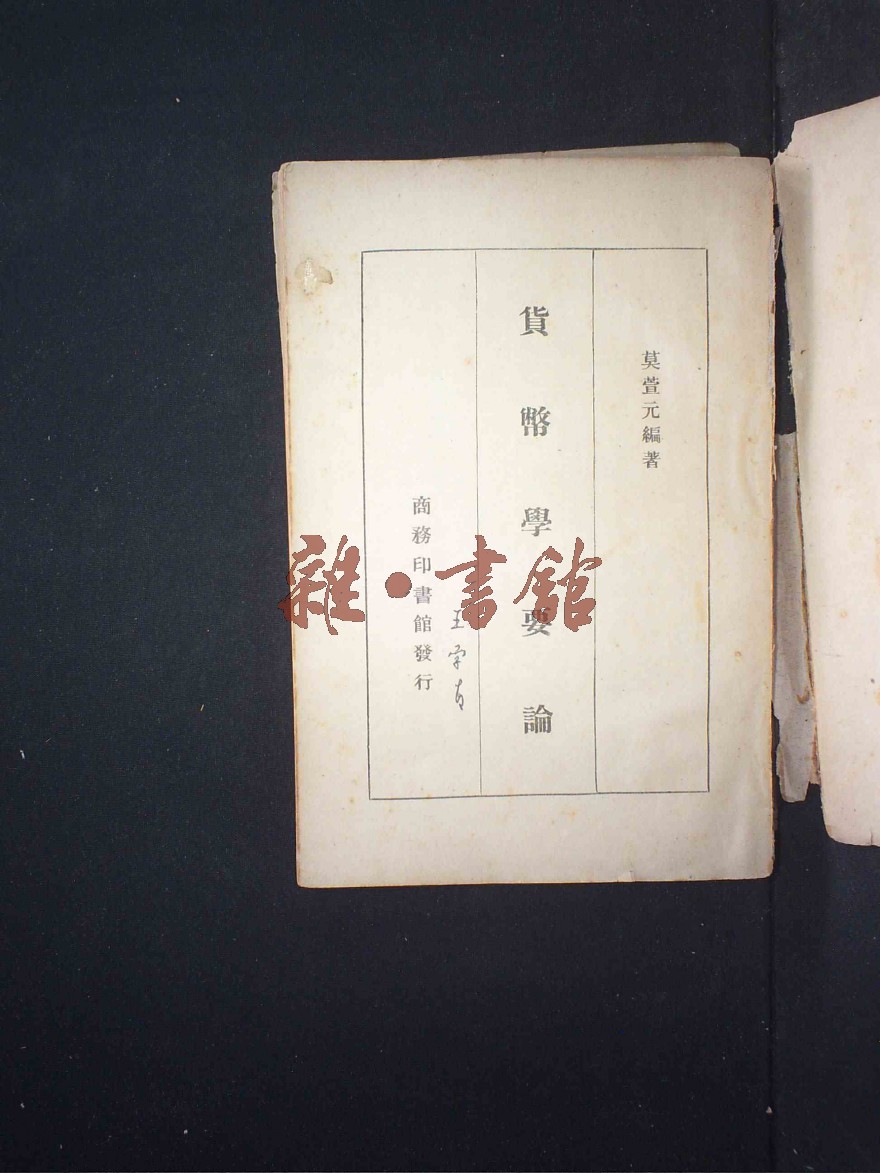 莫萱元編著
貨幣學要論
商務印書館發行
雜·書館